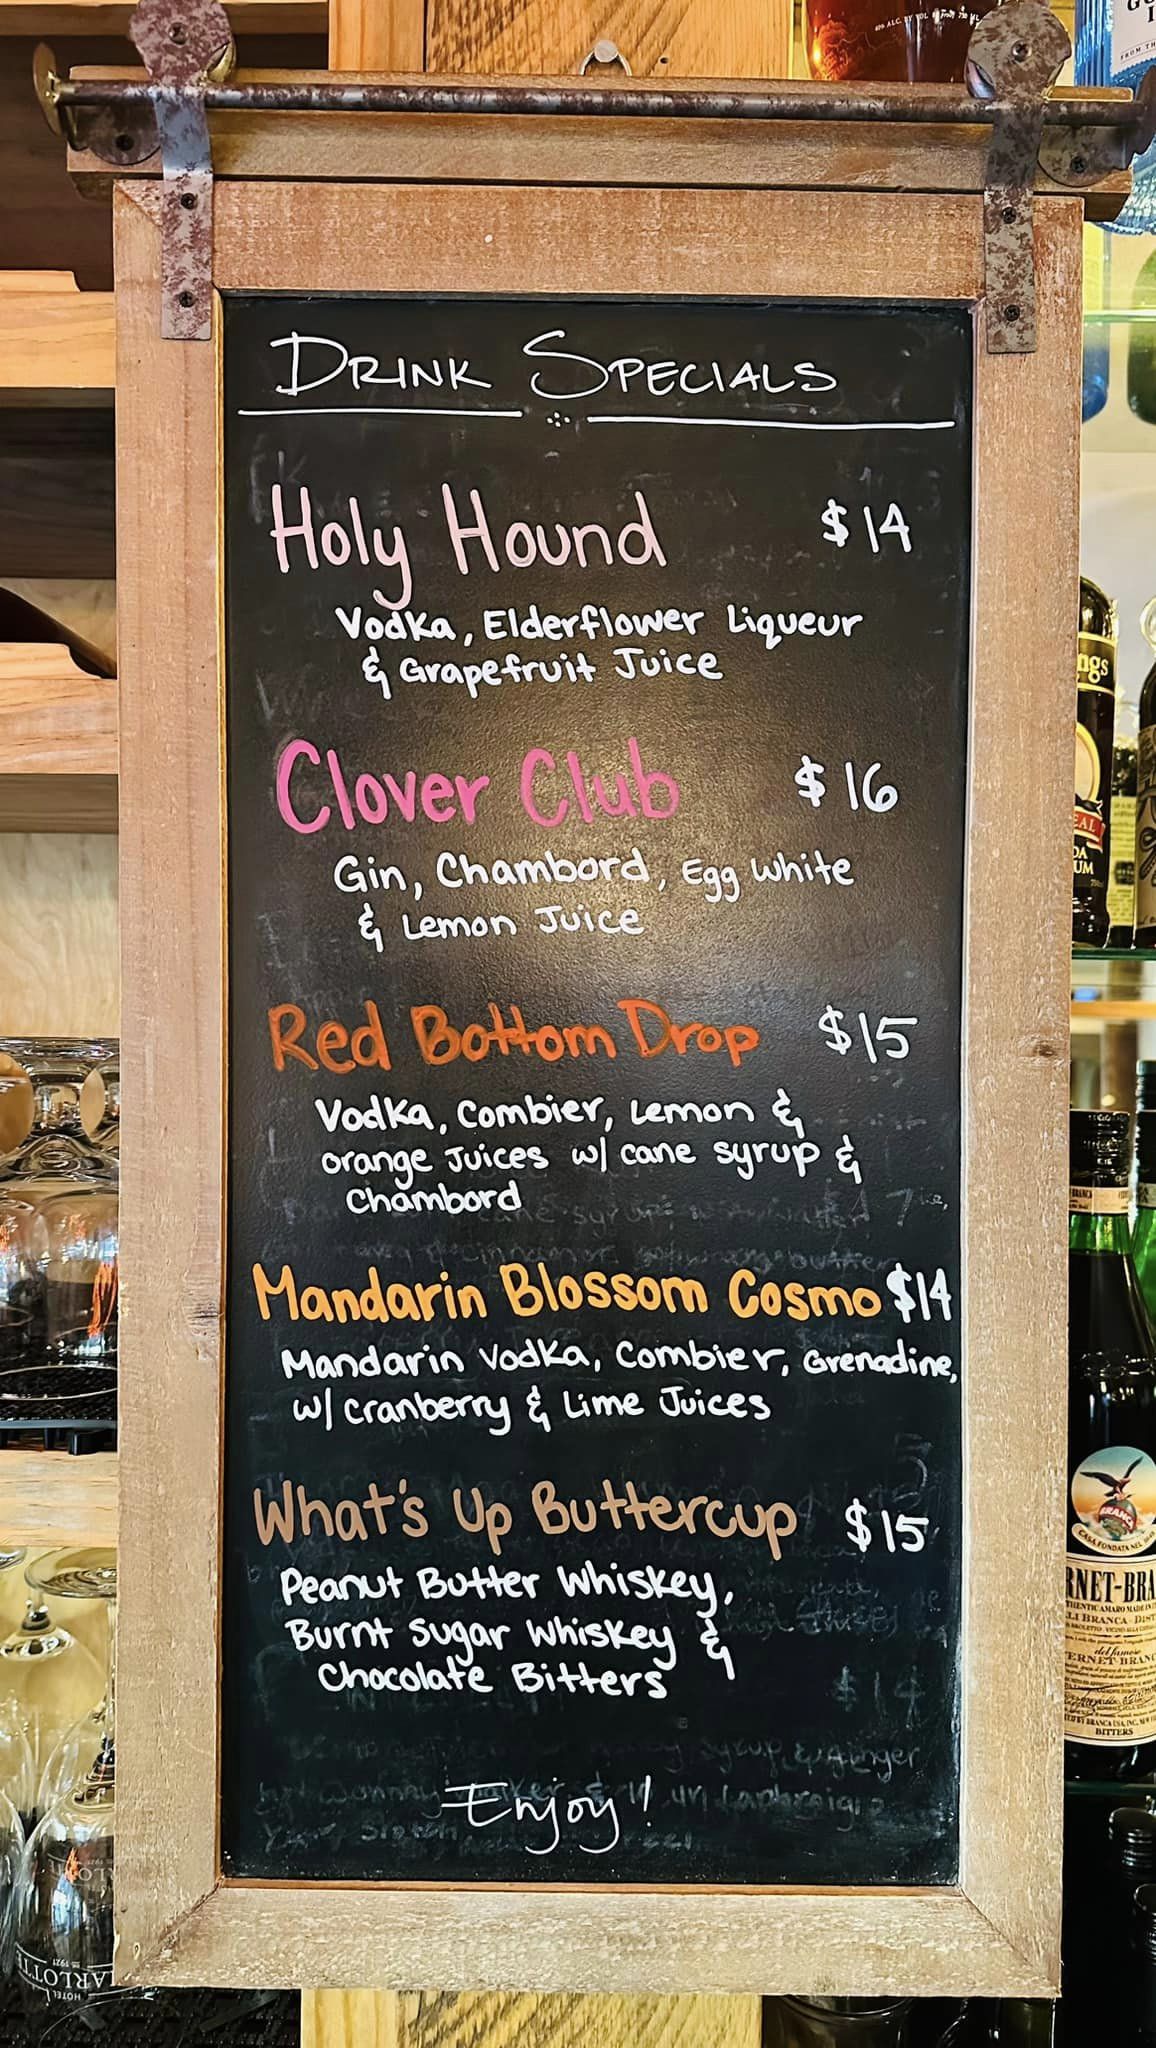 DRINK SPECIALS
Holy Hound $14
Vodka, Elderflower Liqueur
& Grapefruit Juice
Clover Club $16
Gin, Chambord, Egg White
& Lemon Juice
Red Bottom Drop $15
Vodka, Combier, Lemon &
orange Juices w/ cane syrup &
Chambord
Mandarin Blossom Cosmo $14
Mandarin Vodka, Combier, Grenadine,
w/ Cranberry & Lime Juices
What's Up Buttercup $15
Peanut Butter Whiskey,
Burnt Sugar Whiskey &
Chocolate Bitters
Enjoy!
RNET-BRA
BITTERS
HOTEL